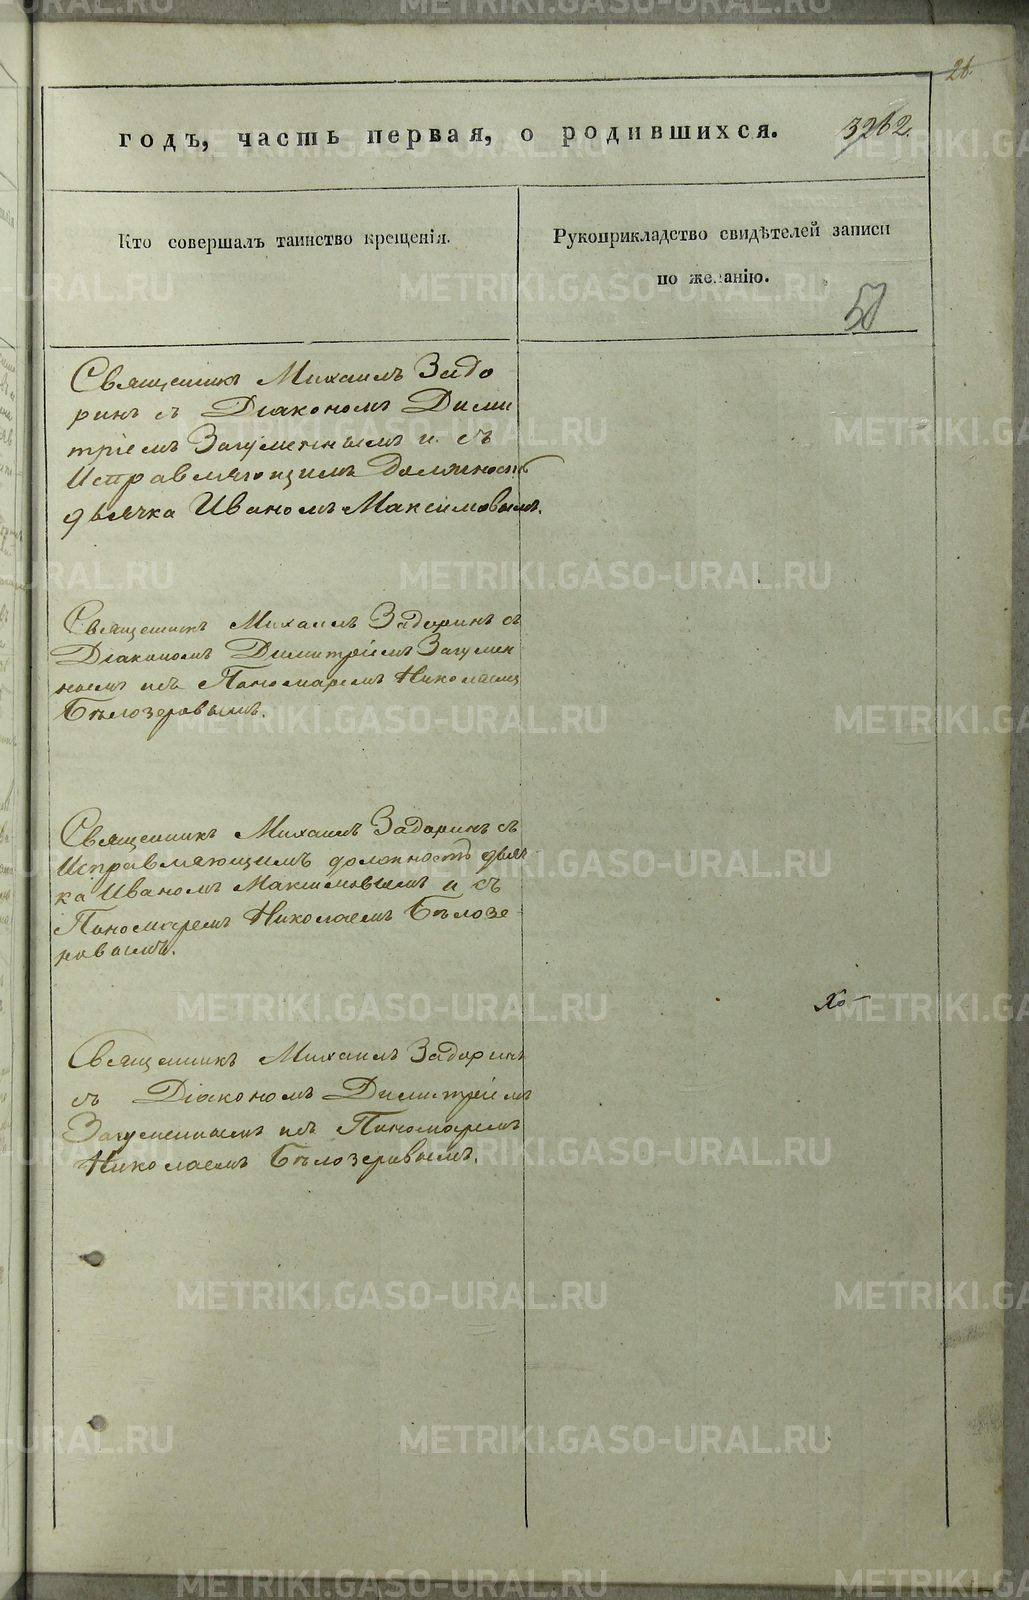 26
годъ, часть первая, о родившихся. 3262.
Кто совершалъ таинство крещенія.
Рукоприкладство свидѣтелей записи
по желанію.
Священникъ Михаилъ Задо
ринъ съ Діакономъ Дими
тріемъ Загуменнымъ и съ
Исправляющимъ должность
дьячка Иваномъ Максимовымъ.
Священникъ Михаилъ Задоринъ съ
Діакономъ Димитріемъ Загумен
нымъ и съ Пономаремъ Николаемъ
Бѣлозеровымъ.
Священникъ Михаилъ Задоринъ съ
Исправляющимъ должность дьяч
ка Иваномъ Максимовымъ и съ
Пономаремъ Николаемъ Бѣлозе-
ровымъ.
Священникъ Михаилъ Задоринъ
съ Діакономъ Димитріемъ
Загуменнымъ и съ Пономаремъ
Николаемъ Бѣлозеровымъ.
METRIKI.GASO-URAL.RU